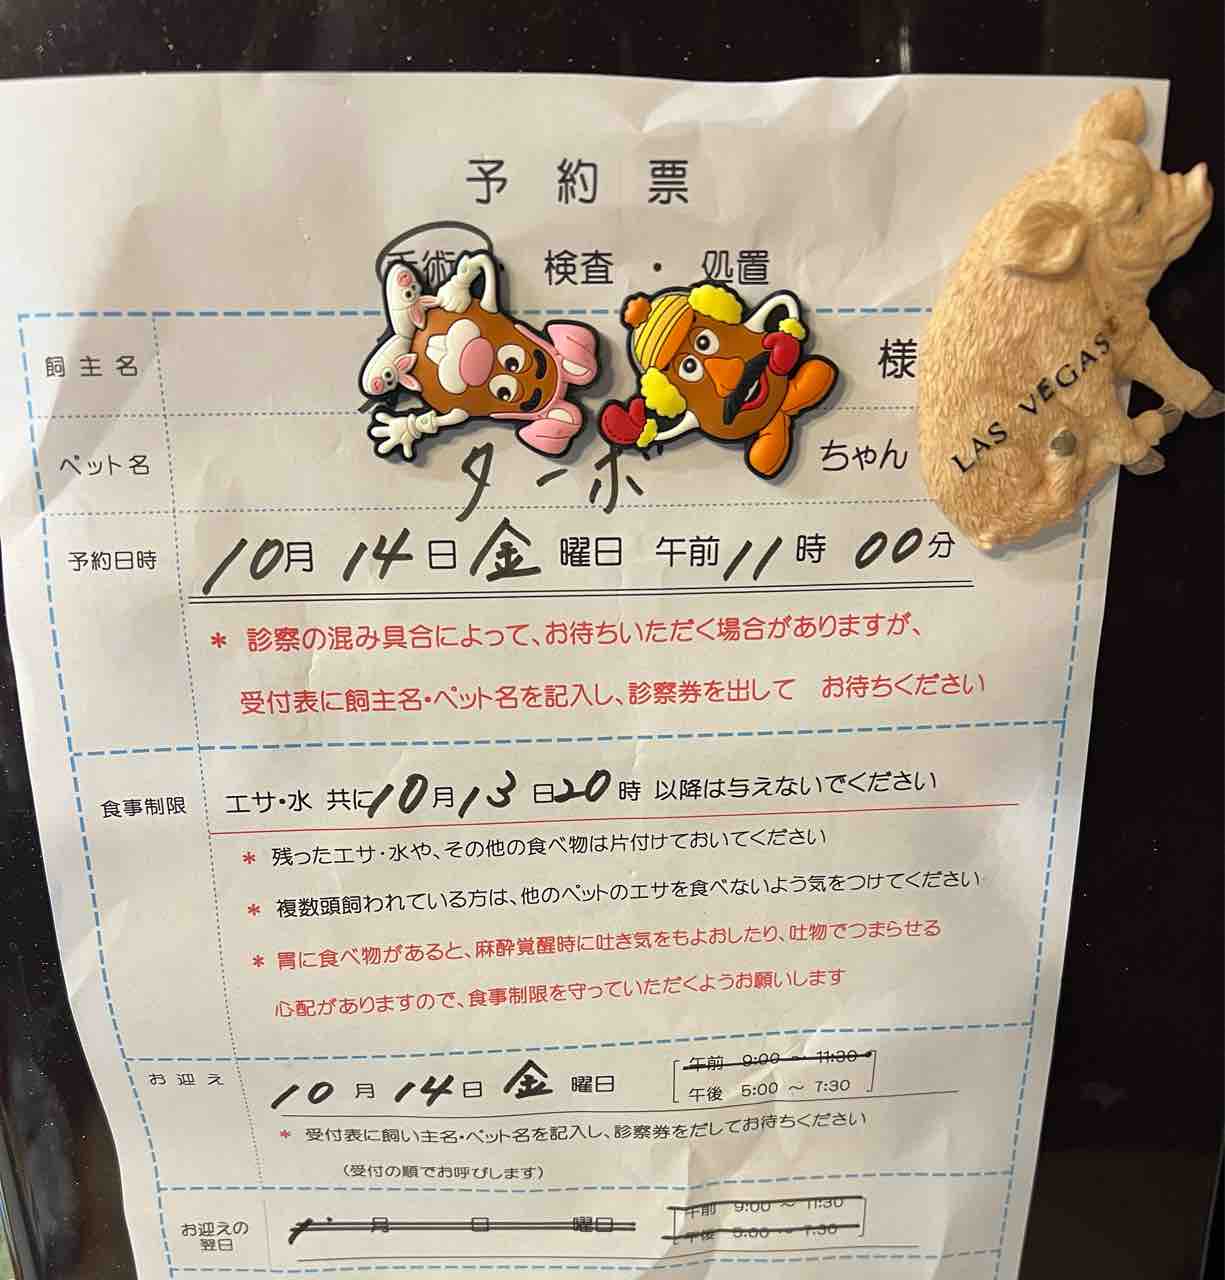 予約票
手術・検査・処置
飼主名 様
ペット名 ターボ ちゃん
予約日時 10月 14日 金曜日 午前11時 00分
* 診察の混み具合によって、お待ちいただく場合がありますが、
受付表に飼主名・ペット名を記入し、診察券を出して お待ちください
食事制限 エサ・水 共に10月13日20時 以降は与えないでください
* 残ったエサ・水や、その他の食べ物は片付けておいてください
* 複数頭飼われている方は、他のペットのエサを食べないよう気をつけてください
* 胃に食べ物があると、麻酔覚醒時に吐き気をもよおしたり、吐物でつまらせる
心配がありますので、食事制限を守っていただくようお願いします
お迎え 10月 14日 金曜日 午前 9:00 ～ 11:30
午後 5:00 ～ 7:30
* 受付表に飼い主名・ペット名を記入し、診察券をだしてお待ちください
（受付の順でお呼びします）
お迎えの 月 日 曜日 午前 9:00 ～ 11:30
翌日 午後 5:00 ～ 7:30
LAS VEGAS